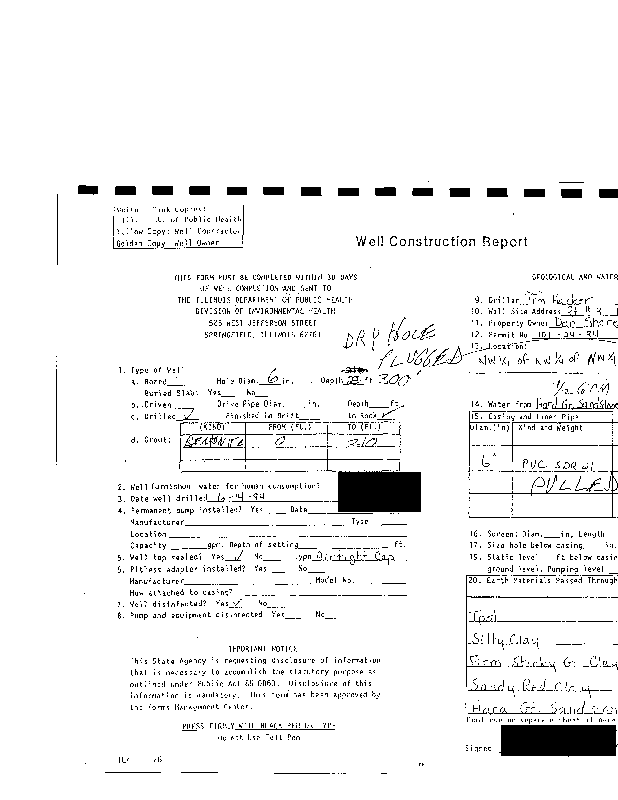 Ill. of Public Health
Yellow Copy: Well Contractor
Golden Copy Well Owner
Well Construction Report
THIS FORM MUST BE COMPLETED WITHIN 30 DAYS
OF WELL COMPLETION AND SENT TO
THE ILLINOIS DEPARTMENT OF PUBLIC HEALTH
DIVISION OF ENVIRONMENTAL HEALTH
525 WEST JEFFERSON STREET
SPRINGFIELD, ILLINOIS 62761
DRY HOLE
PLUGGED
1. Type of Well
a. Bored Hole Diam. 6 in. Depth ft 300'
Buried Slab: Yes No
b. Driven Drive Pipe Diam. in. Depth ft.
c. Drilled ✓ Finished in Drift In Rock ✓
(KIND) FROM (Ft.) TO (Ft.)
d. Grout: BENTONITE 0 210
2. Well furnishes water for human consumption?
3. Date well drilled 6-14-94
4. Permanent pump installed? Yes Date
Manufacturer Type
Location
Capacity gpm. Depth of setting ft.
5. Well top sealed? Yes ✓ No Type Airtight Cap
6. Pitless adapter installed? Yes No
Manufacturer Model No.
How attached to casing?
7. Well disinfected? Yes ✓ No
8. Pump and equipment disinfected Yes No
IMPORTANT NOTICE
This State Agency is requesting disclosure of information
that is necessary to accomplish the statutory purpose as
outlined under Public Act 85-0863. Disclosure of this
information is mandatory. This form has been approved by
the Forms Management Center.
PRESS FIRMLY WITH BLACK PEN OR TYPE
Do Not Use Felt Pen
GEOLOGICAL AND WATER
9. Driller
10. Well Site Address
11. Property Owner Dan
12. Permit No 101-24-94
13. Location:
NW ¼ of NW ¼ of NW ¼
14. Water from Hard Gr. Sandstone
15. Casing and Liner Pipe
Diam.(in) Kind and Weight
6" PVC SDR 21
PULLED
16. Screen: Diam. in, Length
17. Size hole below casing in.
ft below casing
ground level. Pumping level
20. Earth Materials Passed Through
Tpsl
Silty Clay
Firm Sticky G. Clay
Sandy Red Clay
Hard Gr. Sandston
Signed